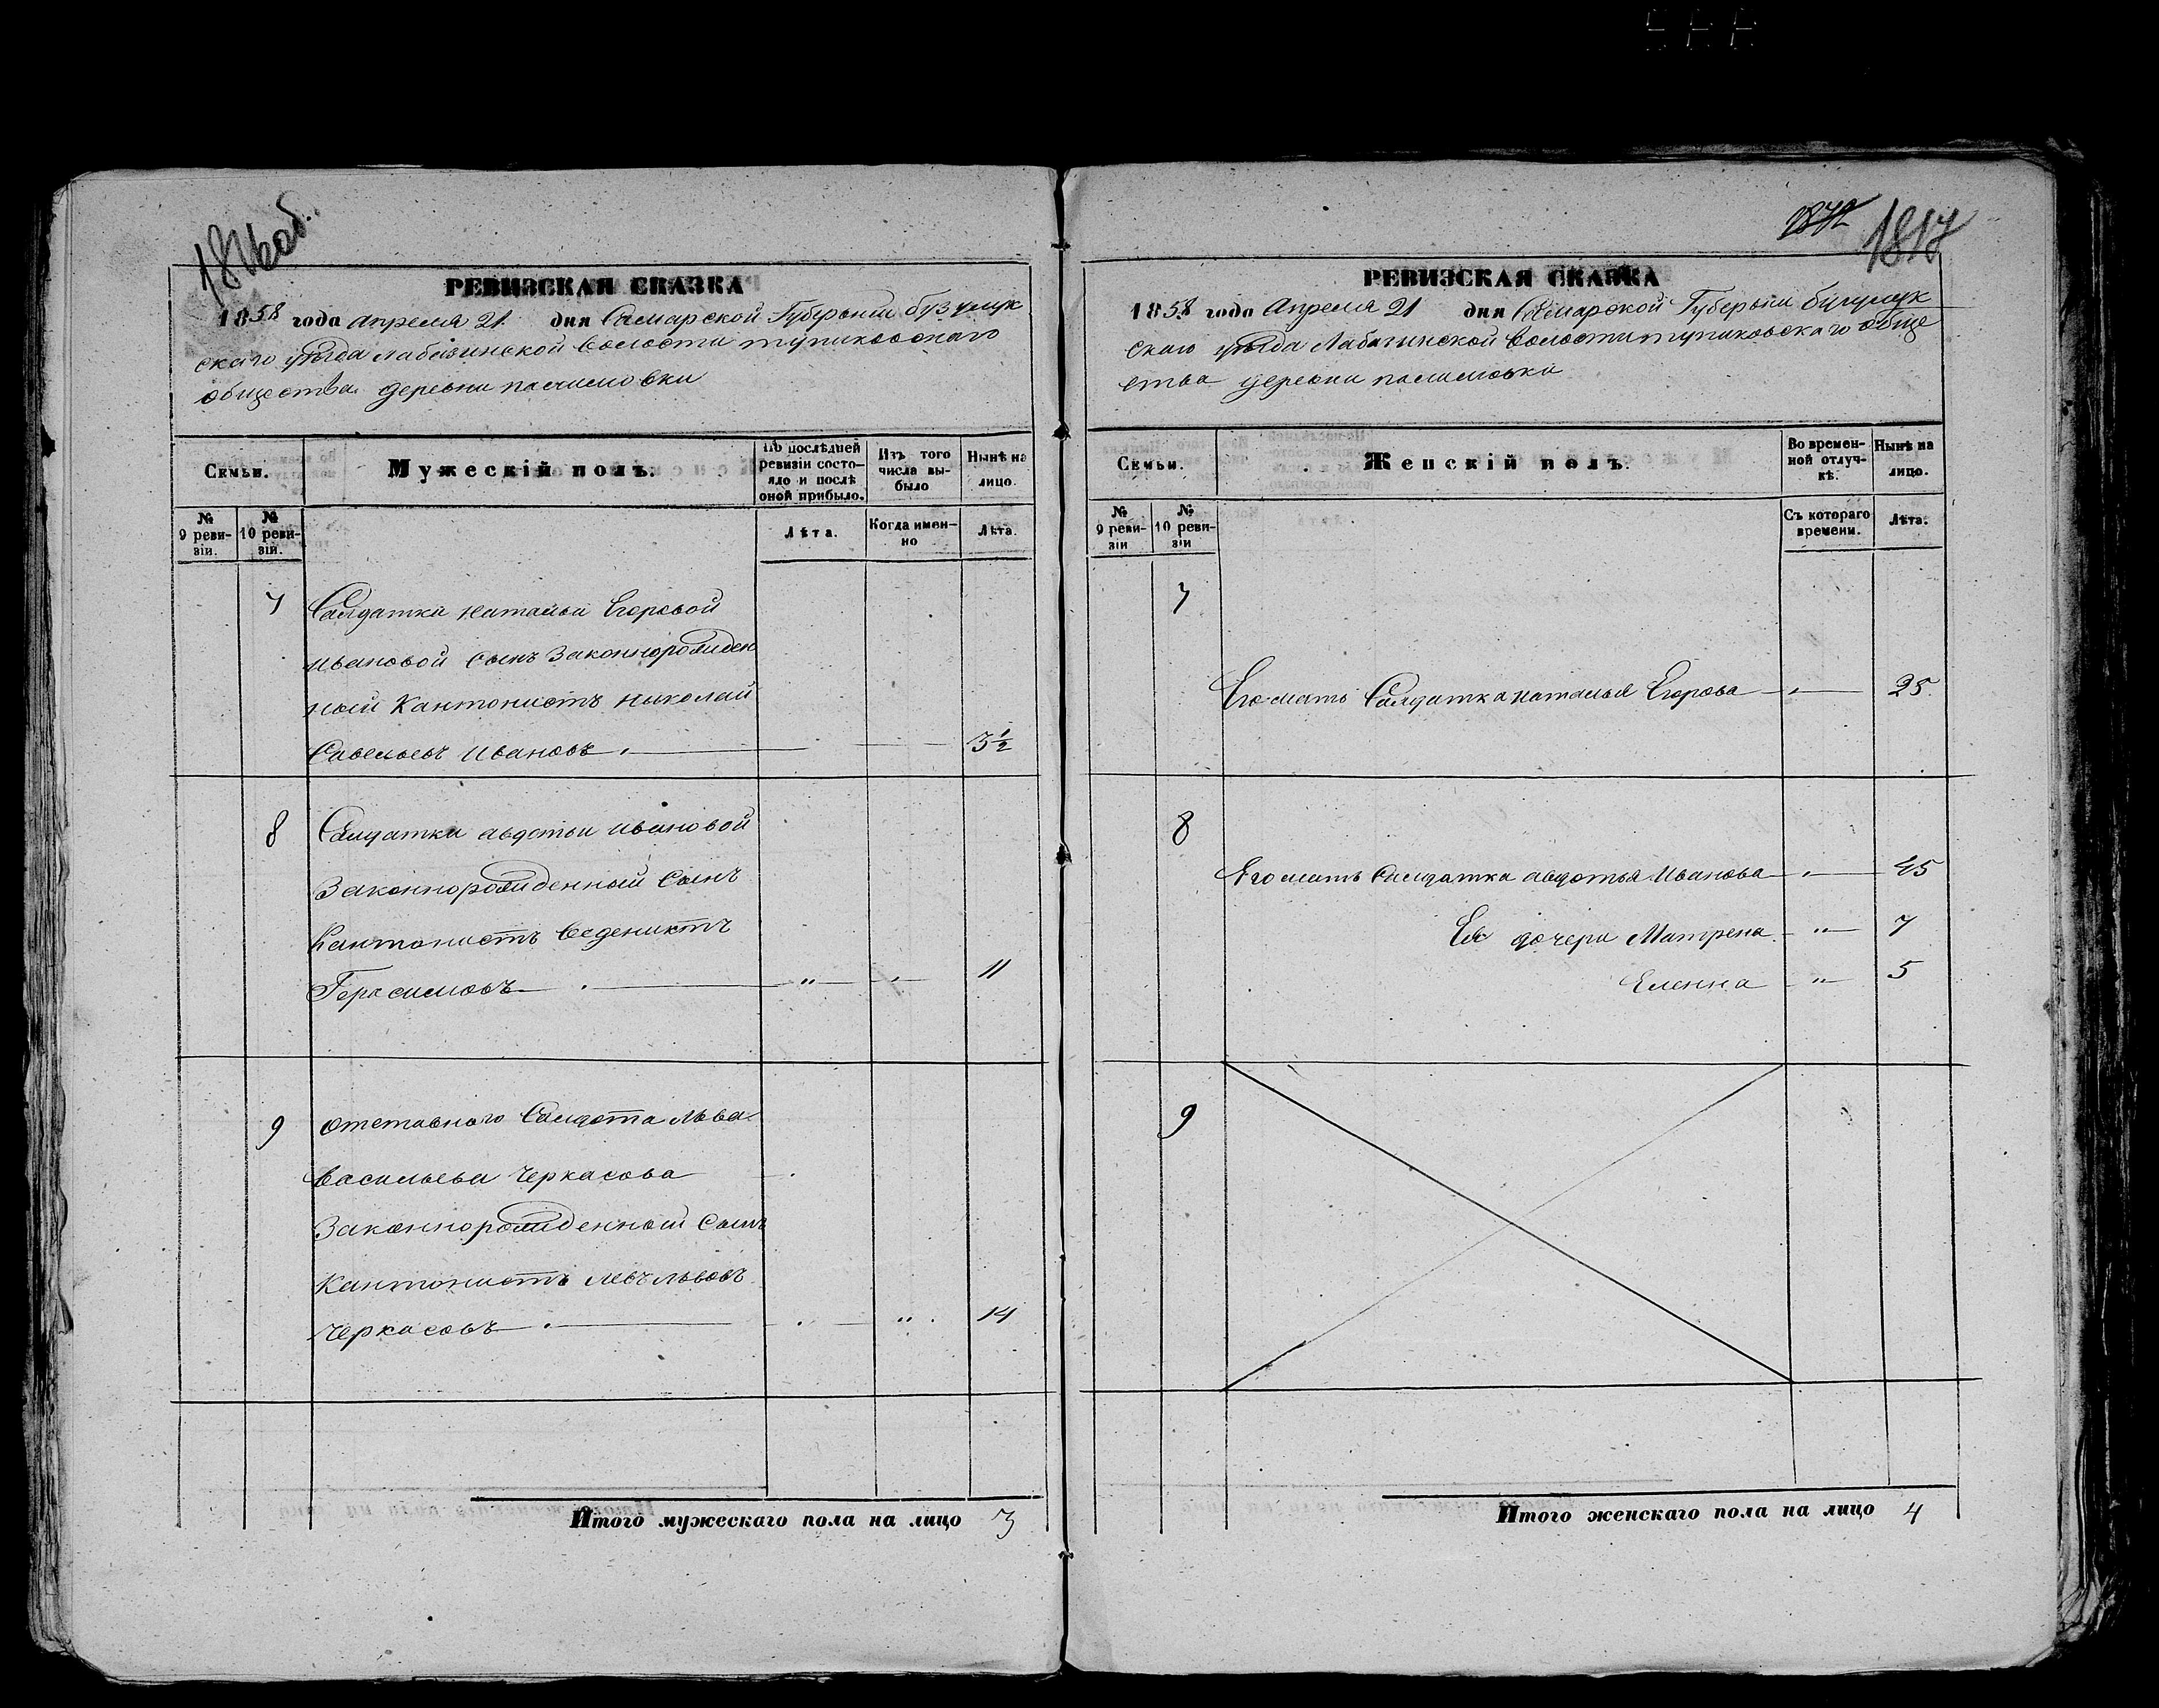 1816 об.
РЕВИЗСКАЯ СКАЗКА
1858 года апреля 21 дня Самарской Губернии бузулук
скаго уезда лабазинской волости тупиковскаго
общества деревни
Семьи.
Мужескій полъ.
По послѣдней ревизіи состо-яло и послѣ оной прибыло.
Изъ того числа вы-было
Нынѣ на лицо.
№ 9 реви-зіи.
№ 10 реви-зіи.
Лѣта.
Когда имен-но
Лѣта.
7 Салдатки натальи Егоровой
ивановой сынъ Законнорожден
ный Кантонистъ николай
Савельевъ Ивановъ 3 1/2
8 Салдатки авдотьи ивановой
Законнорожденный сынъ
Кантонистъ Веденихтъ
Герасимовъ " 11
9 отставного Салдата льва
васильева Черкасова
Законнорожденный сынъ
Кантонистъ левъ львовъ
Черкасовъ " 14
Итого мужескаго пола на лицо 3
1872 1817
РЕВИЗСКАЯ СКАЗКА
1858 года Апреля 21 дня Самарской Губерніи бузулук
скаго уезда Лабазинской волости тупиковскаго обще
ства деревни
Семьи.
Женскій полъ.
Во времен-ной отлуч-кѣ.
Нынѣ на лицо.
№ 9 реви-зіи
№ 10 реви-зіи
Съ котораго времени.
Лѣта.
7
Его мать Салдатка наталья Егорова 25
8
Его мать Салдатка авдотья Иванова 45
Ее дочери Матрена " 7
Еленна " 5
9
Итого женскаго пола на лицо 4